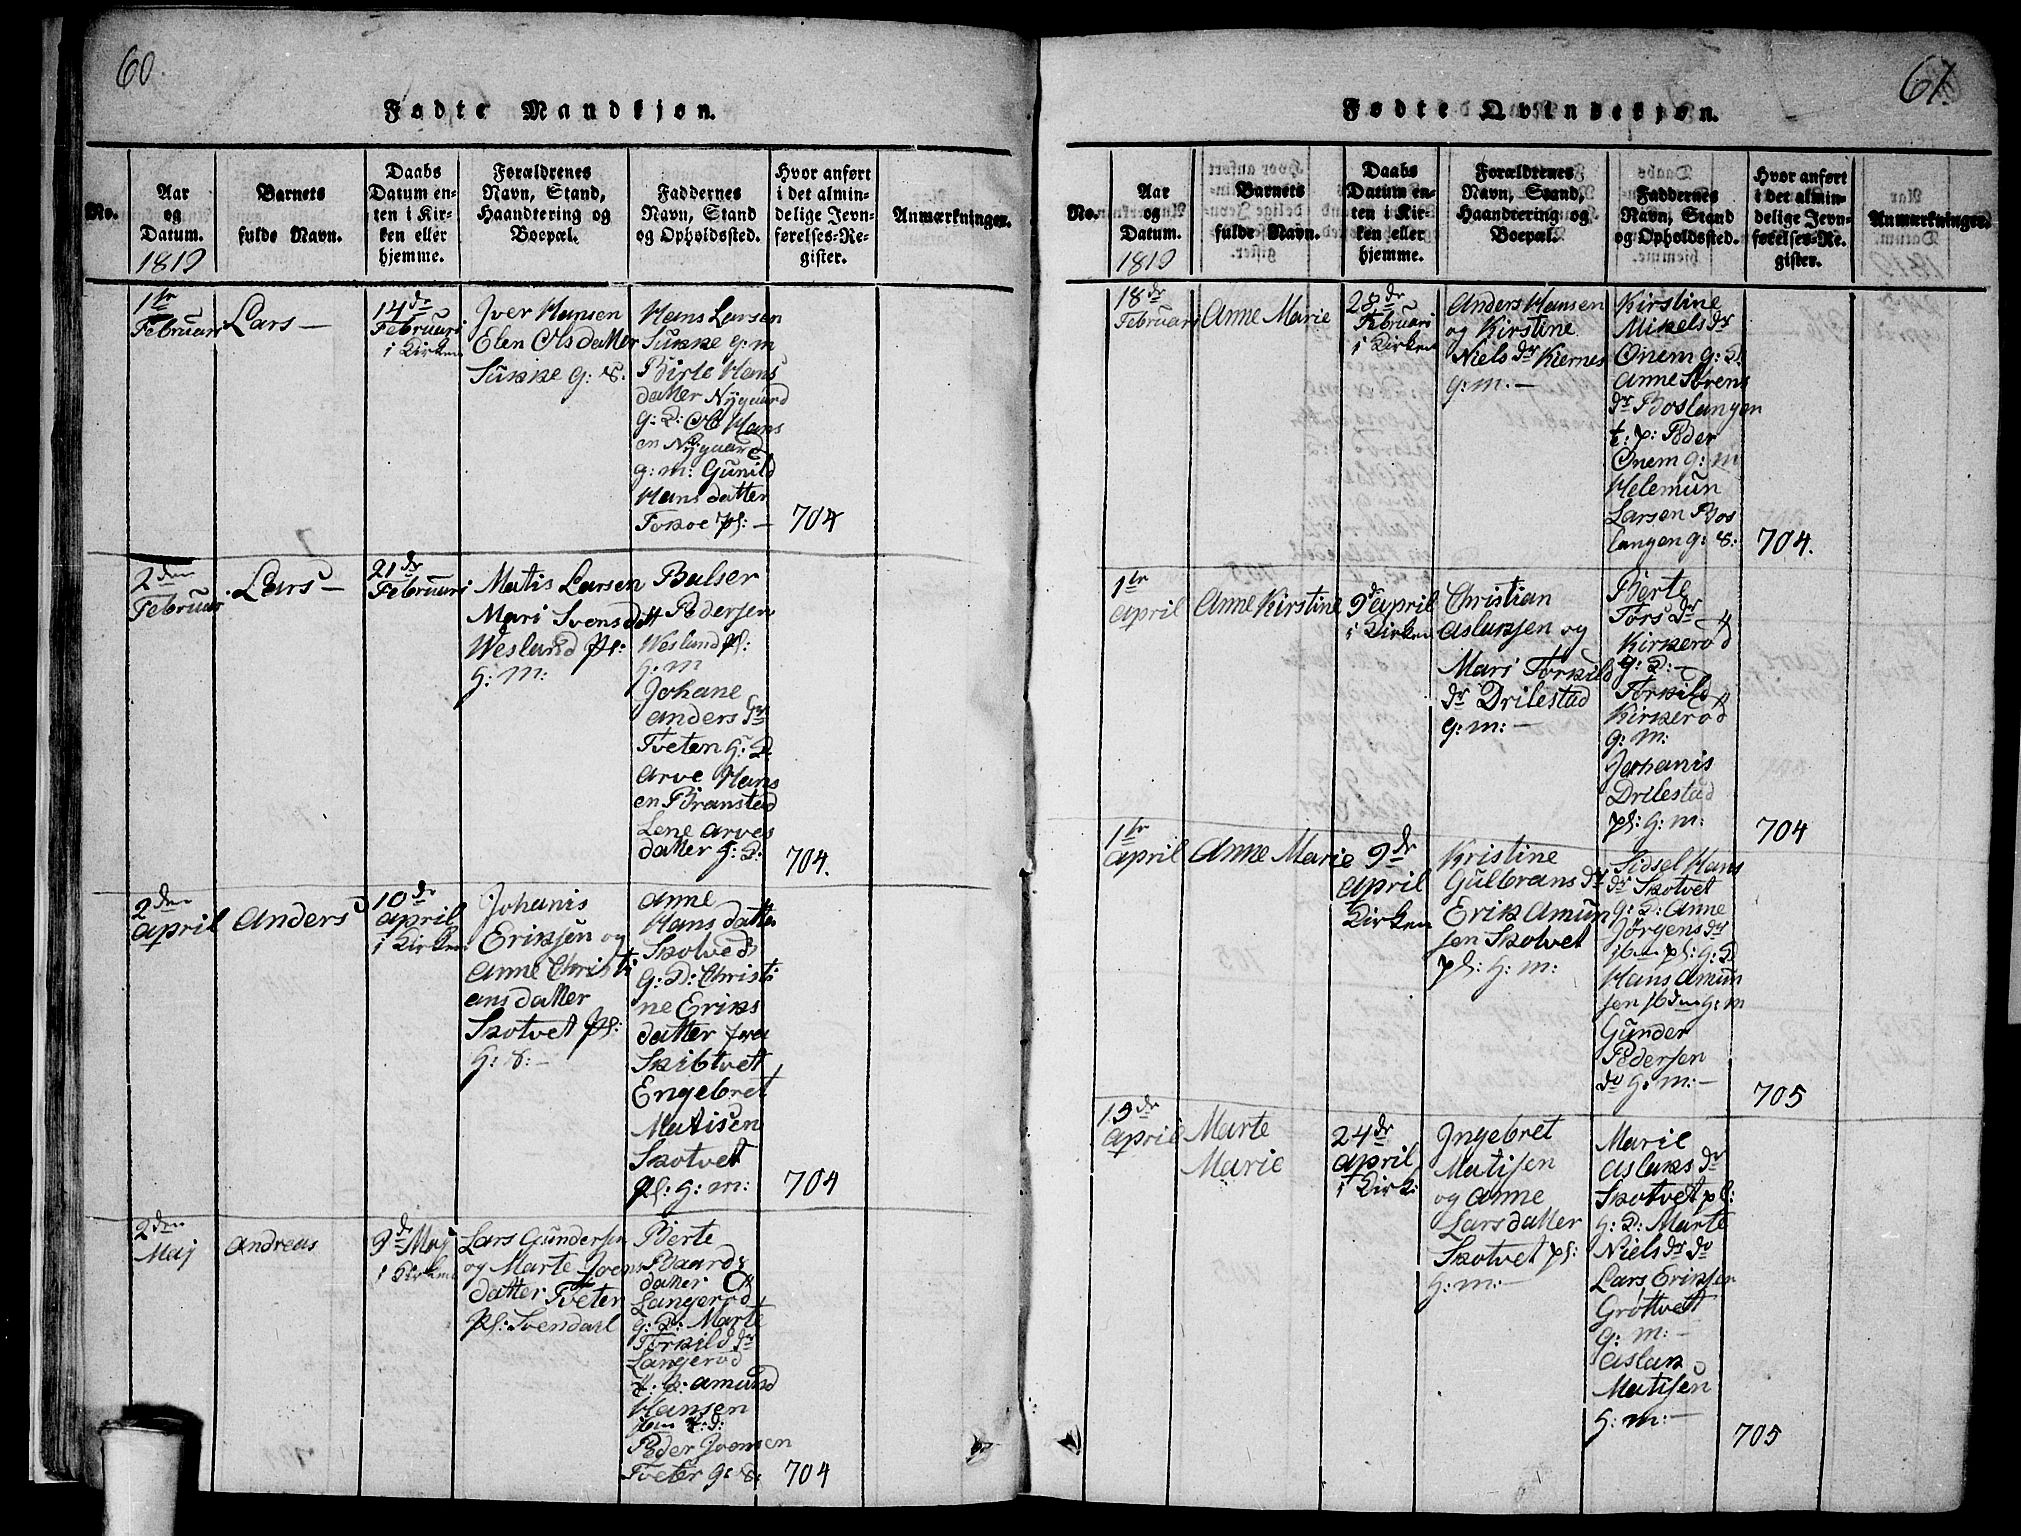 60.
Fødte Mandkjøn.
No.
Aar
og
Datum.
1819
Barnets
fulde Navn.
Daabs
Datum en-
ten i Kir-
ken eller
hjemme.
Forældrenes
Navn, Stand,
Haandtering og
Boepæl.
Faddernes
Navn, Stand
og Opholdssted.
Hvor anført
i det almin-
delige Jevn-
førelses-Re-
gister.
Anmærkninger.
1te
Februari
Lars
14de
Februari
i Kirken
Iver Hansen
Elen Olsdatter
Sukke g: &.
Hans Larsen
Sukke g: m
Birte Hans
datter Nygaard
g: D: Ol Hans
en Nygaard
g: m: Gunild
Hans datter
Foksoe pl: —
704
2den
Februar
Lars —
21de
Februari
Matis Larsen
Mari Svensdatt
Weslund pl:
g: m:
Balser
Pedersen
Weslund pl:
g: m
Johane
anders dr
Tveten g: D
arve Hans
en Branstad
Lene arves
datter g: D:
704.
2den
april
Anders
10de
april
i Kirken
Johanis
Eriksen og
Anne Christi
ansdatter
Skotvet pl:
g: &: —
Anne
Hans datter
Skotved
g: D: Christi
ne Eriks
datter
Skibtvet
Engebret
Matisen
Skotvet
pl: g: m:
704
2den
Maj
Andreas
9de Maj
i Kirken
Lars Gundersen
og Marte Joens
datter Tveten
pl: Svendael
Berte
Baards
datter
Langerød
g: D: Marte
Torkild dr
Langerød
amund
Hansen
Peder Joensen
Tveter g: &:
704
61.
Fødte Qvindekjøn.
No.
Aar
og
Datum.
1819
Barnets
fulde Navn.
Daabs
Datum en-
ten i Kir-
ken eller
hjemme.
Forældrenes
Navn, Stand,
Haandtering og
Boepæl.
Faddernes
Navn, Stand
og Opholdssted.
Hvor anført
i det almin-
delige Jevn-
førelses-Re-
gister.
Anmærkninger.
18de
Februari
Anne Marie
28de
Februari
i Kirken
Anders Hansen
og Kirstine
Niels dr Kiernes
g: m: —
Kirstine
Mikels dr
Onem g: D.
Anne Sørens
dr Boslangen
Peder
Onem g: m
Helemun
Larsen Bos
langen g: &:
704.
1te
april
Anne Kirstine
9de april
i Kirken
Christian
Aslaksen og
Mari Torkild
dr Drilestad
g: m: —
Berte
Tors dr
Kirkerød
g: D: —
Torkild
Kirkerød
g: m:
Johanis
Drilestad
pl: g: m:
704
1te
april
Anne Marie
9de
april
i Kirken
Kristine
Gulbrans dr
Erik Amun
sen Skotvet
pl: g: m:
Sidsel Hans
dr Skotvet
g: D: Anne
Jørgens dr
ibm pl: g: D
Hans Amun
sen ibden g: m
Gunder
Pedersen
do g: m: —
705
19de
april
Marte
Marie
24de
april
i Kirk:
Ingebret
Matisen
og Anne
Larsdatter
Skotvet pl:
g: m: —
Marie
Aslaks dr
Skotvet pl:
g: D: Marte
Niels dr do
Lars Eriksen
Grøttvett
g: m: —
Aslak
Matisen
g: m: —
705